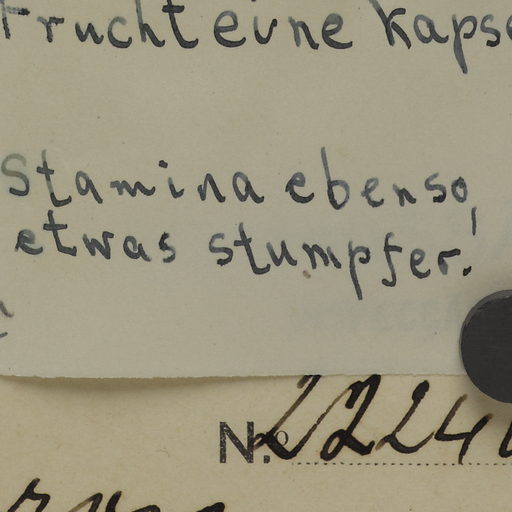 Frucht eine Kapse
Stamina ebenso,
etwas stumpfer!
N.o 2224